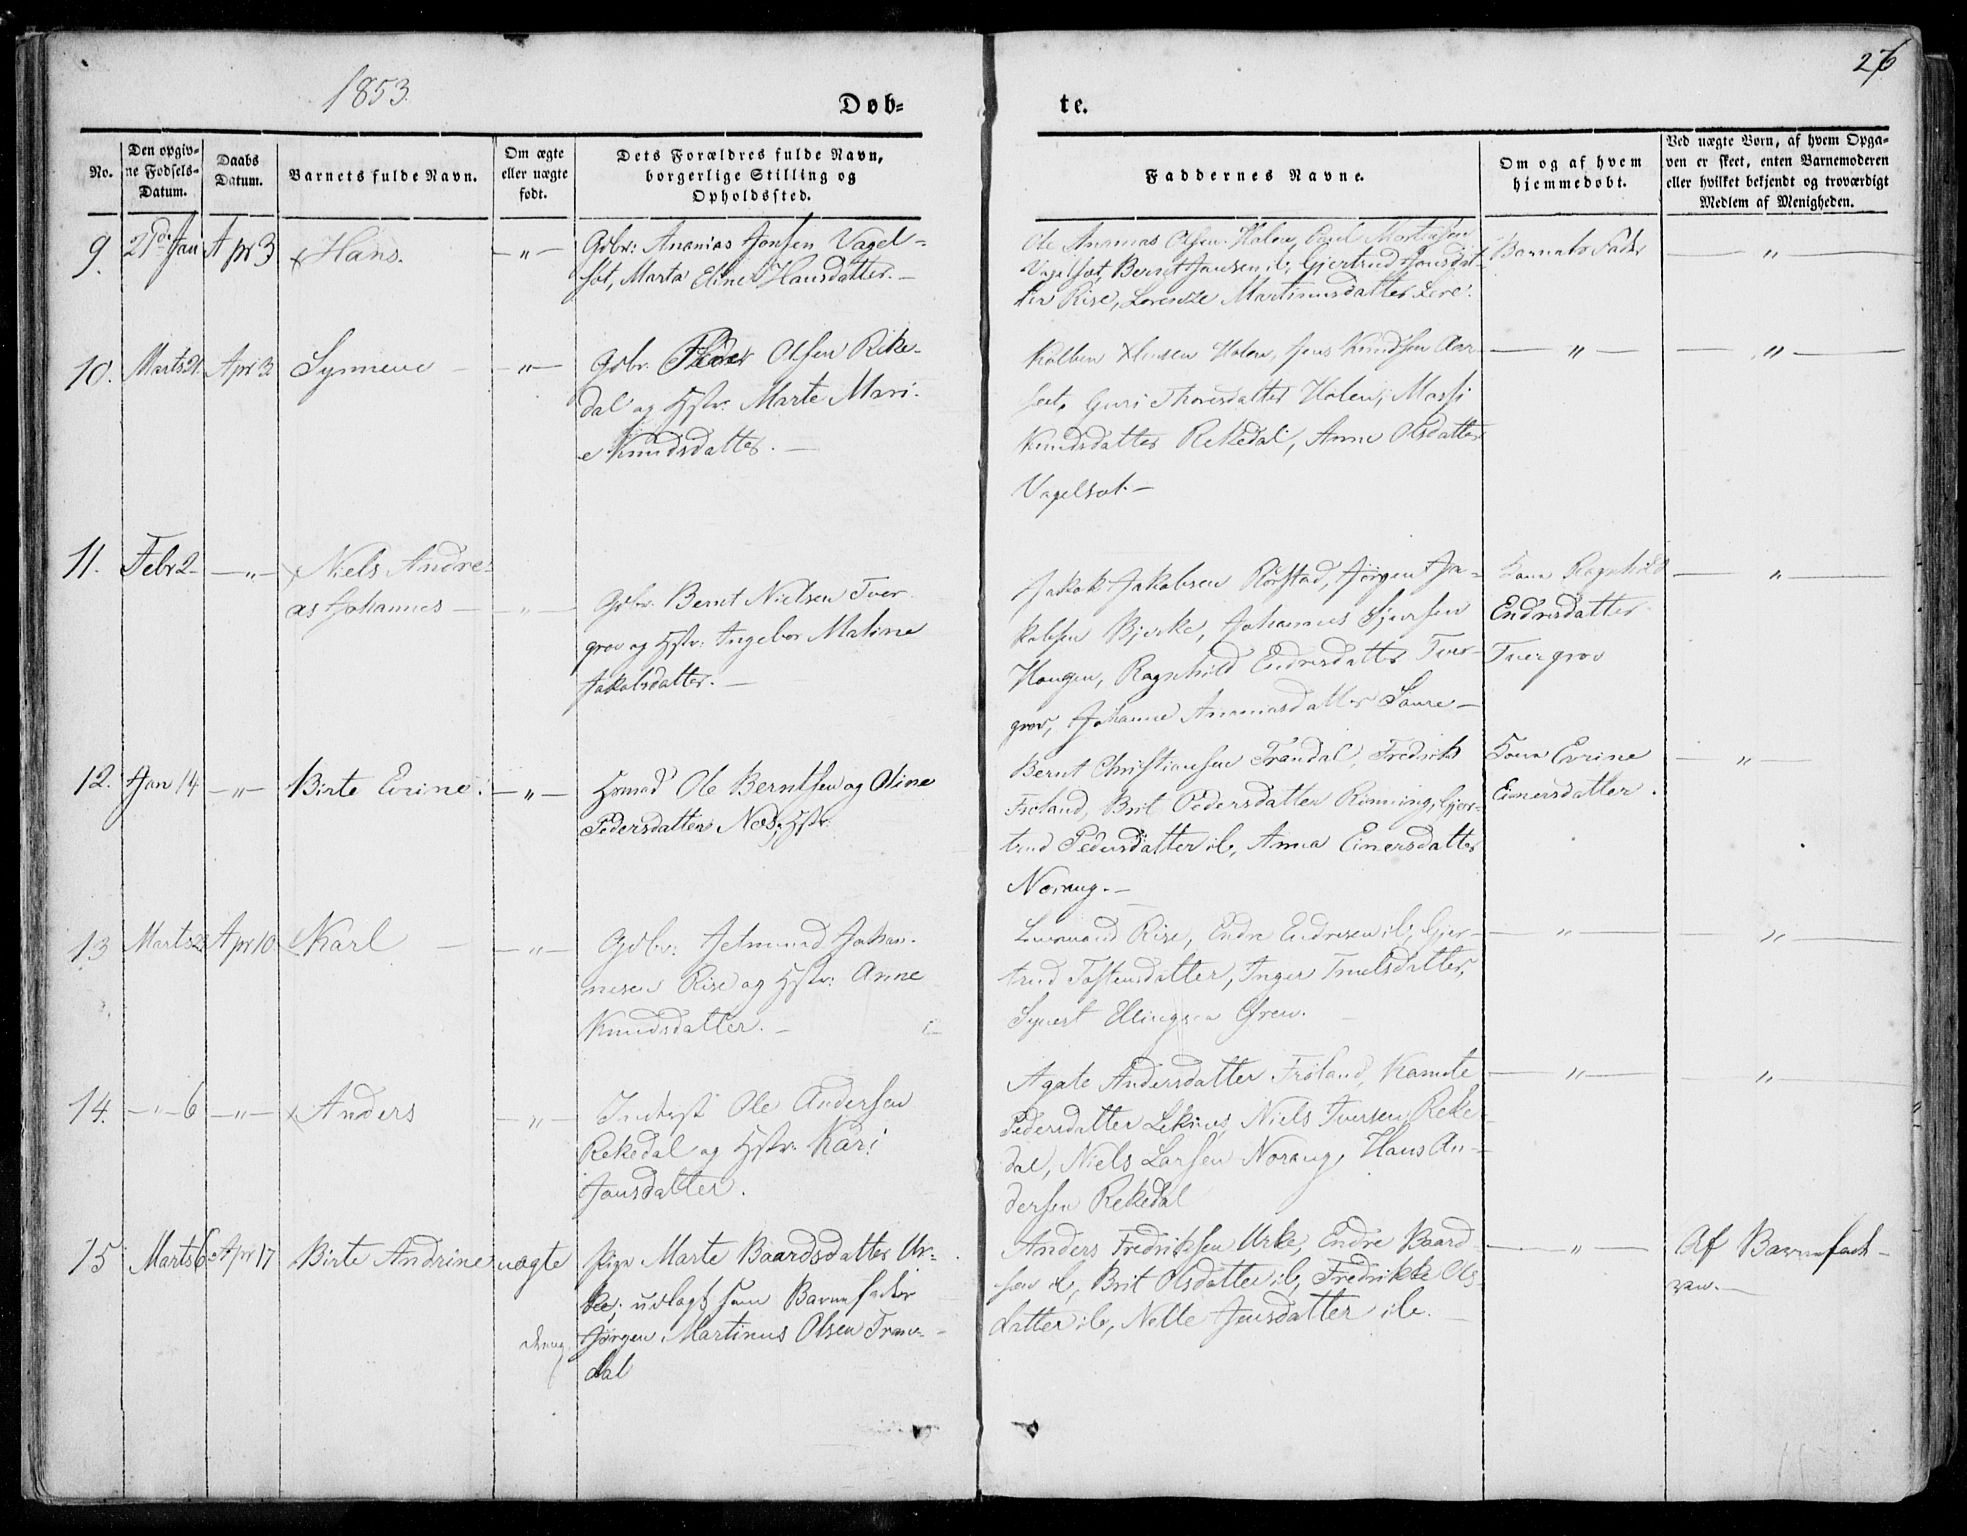 1853.
26
Døb-
te.
No.
Den opgiv-
ne Fødsels-
Datum.
Daabs
Datum.
Barnets fulde Navn.
Om ægte
eller uægte
født.
Dets Forældres fulde Navn,
borgerlige Stilling og
Opholdssted.
Faddernes Navne.
Om og af hvem
hjemmedøbt.
Ved uægte Børn, af hvem Opga-
ven er skeet, enten Barnemoderen
eller hvilket bekjendt og troværdigt
Medlem af Menigheden.
9. Jan Apr 3 Hans. — " —
Gdbr: Ananias Jonsen Vagel-
sæt, Marta Eline Hansdatter. —
Ole Ananias Olsen Holen, Martinsen
Vagelsæt, Bernt Jansen ib, Gjertrud Jonsdat-
ter Rise, Martinusdatter
Barnets Fader
— " —
10. Marts Apr 3 Synneve — — " —
Gdbr. Peder Olsen Rike-
dal og Hstr: Marte Mari-
e Knudsdatter. —
Holen, Jens Knudsen Aar-
sæt, Guri Holen, Massi
Knudsdatter Rekedal, Anne Olsdatter
Vagelsæt. —
— " —
— " —
11. Febr 2 — " — Niels Andre-
as Johannes — — " —
Gdbr. Bernt Nielsen Tver-
grov og Hstr: Ingebor Maline
Jakobsdatter. —
Jakob Jakobsen Rørstad, Jørgen Ja-
kobsen Bjerke, Johannes Sjursen
Haugen, Ragnhild Endresdatter Tver-
grov, Johanne Ananiasdatter Saure —
Kone Ragnhild
Endresdatter
Tvergrov
— " —
12. Jan 14 — " — Birte Evine. — " —
Hmnd Ole Berntsen og Oline
Pedersdatter Nes, Hstr.
Bernt Christiansen Trandal, Fredrik
Frøland, Brit Pedersdatter Rønning, Gjer-
trud Pedersdatter ib, Anna Einersdatter
Norang. —
Kone Evine
Einersdatter.
— " —
13 Marts Apr 10 Karl — — " —
Gdbr: Jetmund Johan-
nesen Rise og Hstr: Anne
Knudsdatter. —
Rise, Endre Endresen ib, Gjer-
trud Tostensdatter, Inger
Synert Ellingsen
— " —
— " —
14. — " — 6 — " — Anders — " —
Inderst Ole Andersen
Rekedal og Hstr: Kari
Jonsdatter.
Agate Andersdatter Frøland,
Pedersdatter Niels Iversen Reke-
dal, Niels Larsen Norang, Hans An-
dersen Rekedal
— " —
— " —
15 Marts 6 Apr 17 Birte Andrine uægte
Pige Marte Baardsdatter Ur-
ke. udlagt som Barnefader
Jørgen Martinus Olsen Tran-
dal
Anders Fredriksen Urke, Endre Baard-
sen ib, Brit Olsdatter ib, Fredrikke Ols-
datter ib, Nelle Jensdatter ib.
— " —
Af Barnefad-
ren. —